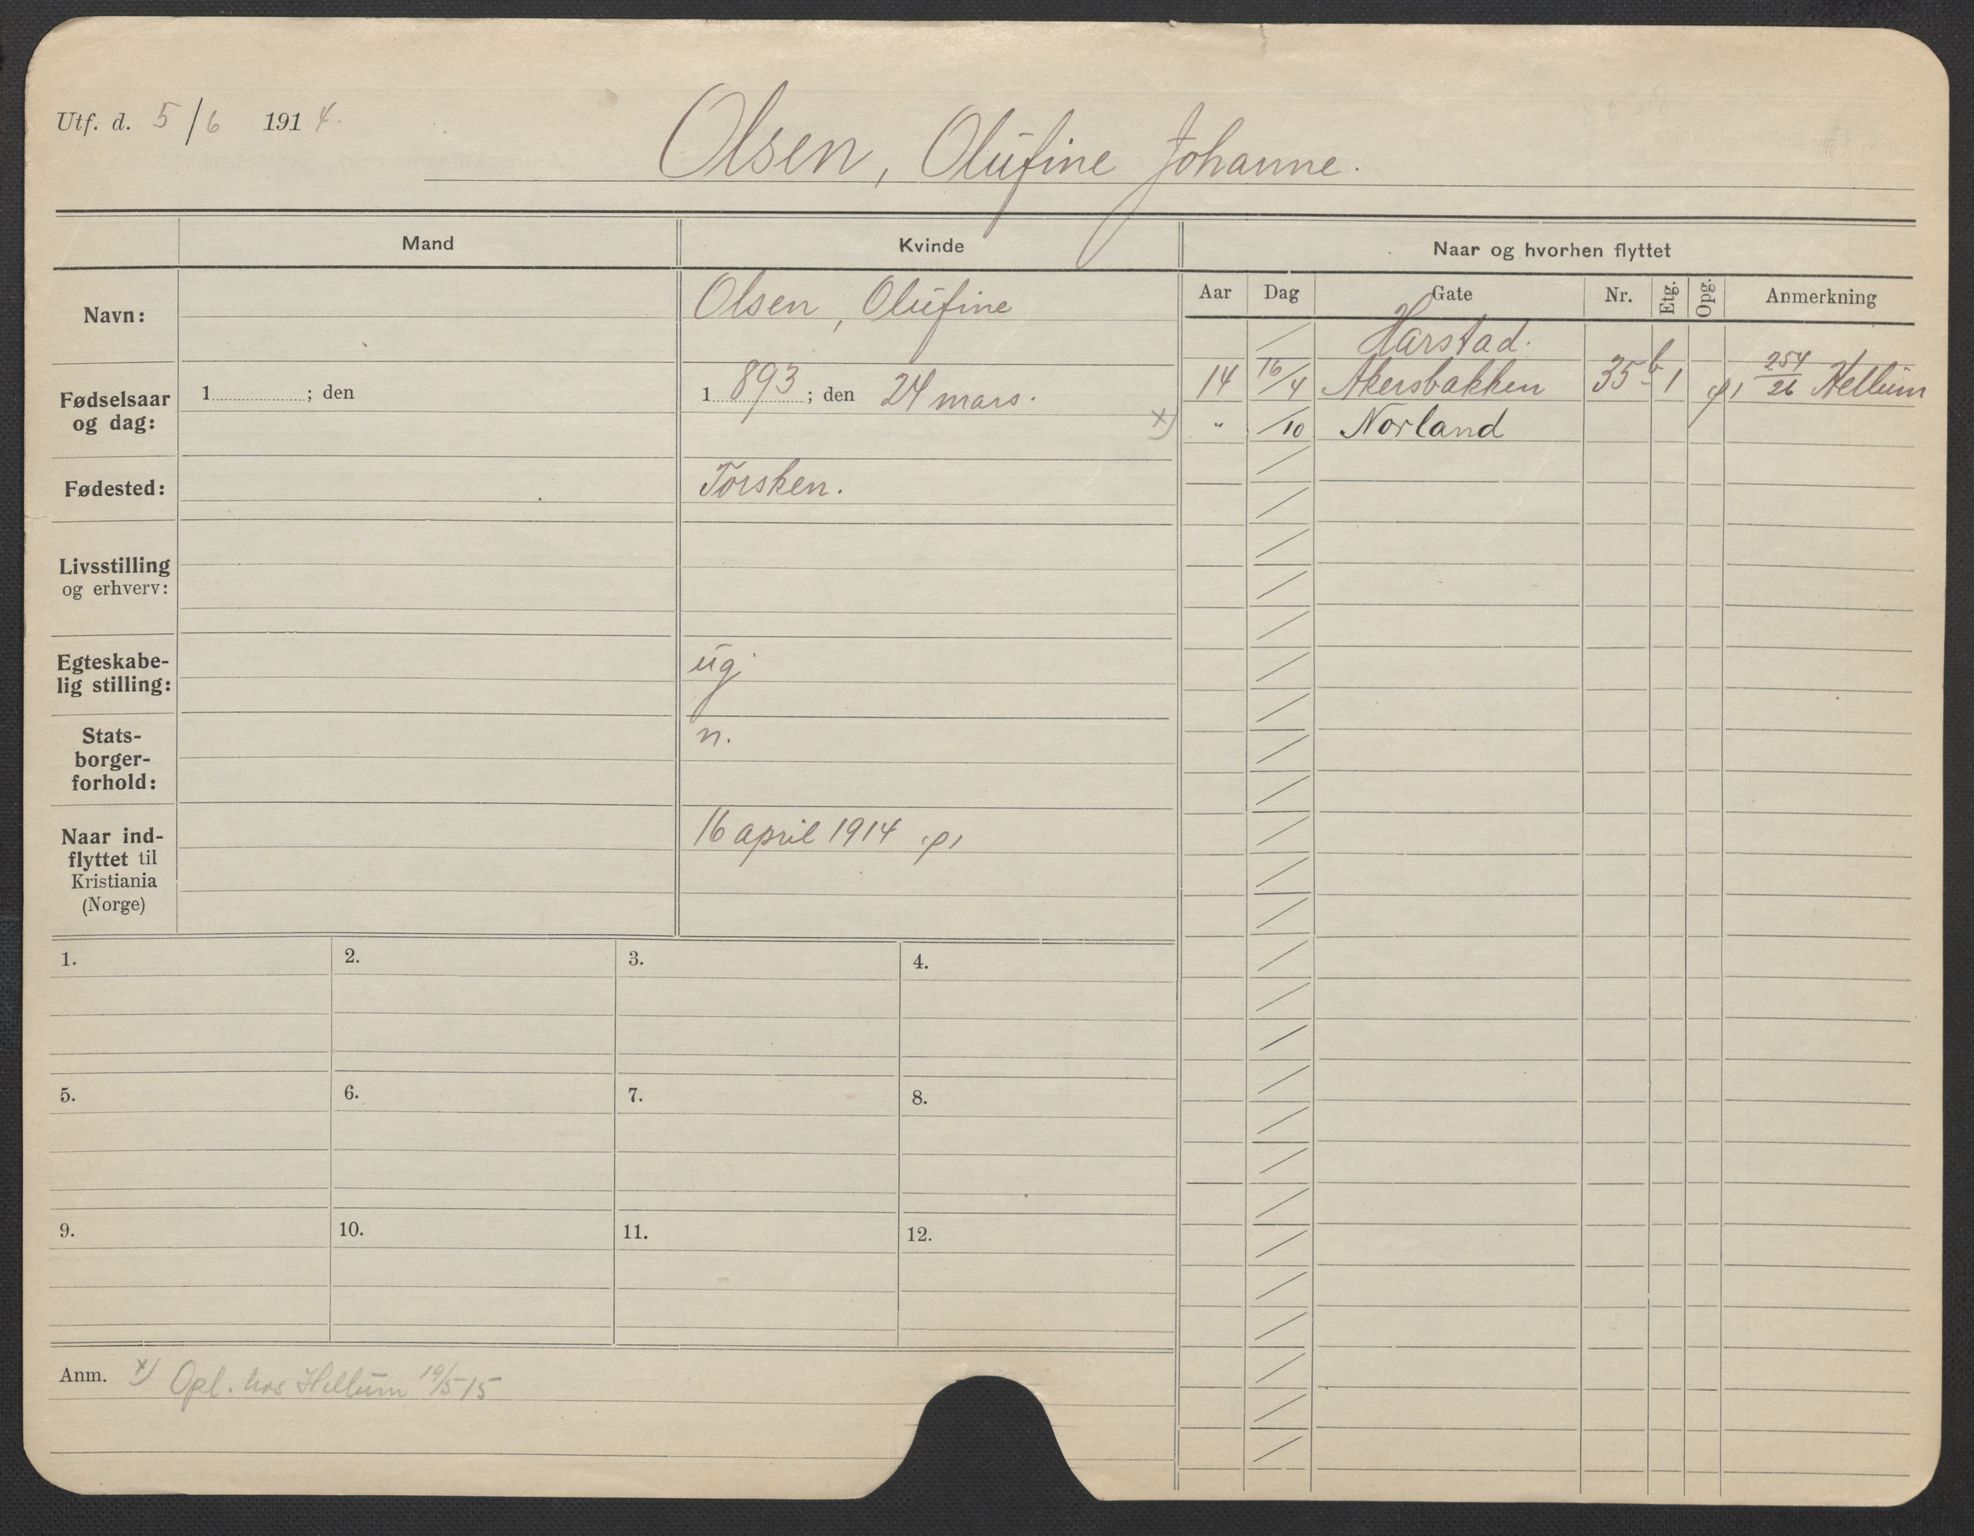 Utf. d. 5/6 1914.
Olsen, Olufine Johanne.
Mand
Kvinde
Naar og hvorhen flyttet
Aar Dag Gate Nr. Etg. Opg. Anmerkning
Navn:
Olsen, Olufine
Fødselsaar
og dag:
1 ; den
1893; den 24 mars.
x)
Fødested:
Torsken.
Livsstilling
og erhverv:
Egteskabe-
lig stilling:
ug
Stats-
borger-
forhold:
n.
Naar ind-
flyttet til
Kristiania
(Norge)
16 april 1914
Harstad.
14 16/4 Akersbakken 35b 1 254/26 Hellum
" /10 Norland
1. 2. 3. 4.
5. 6. 7. 8.
9. 10. 11. 12.
Anm. x) Opl. hos Hellum 19/5 15